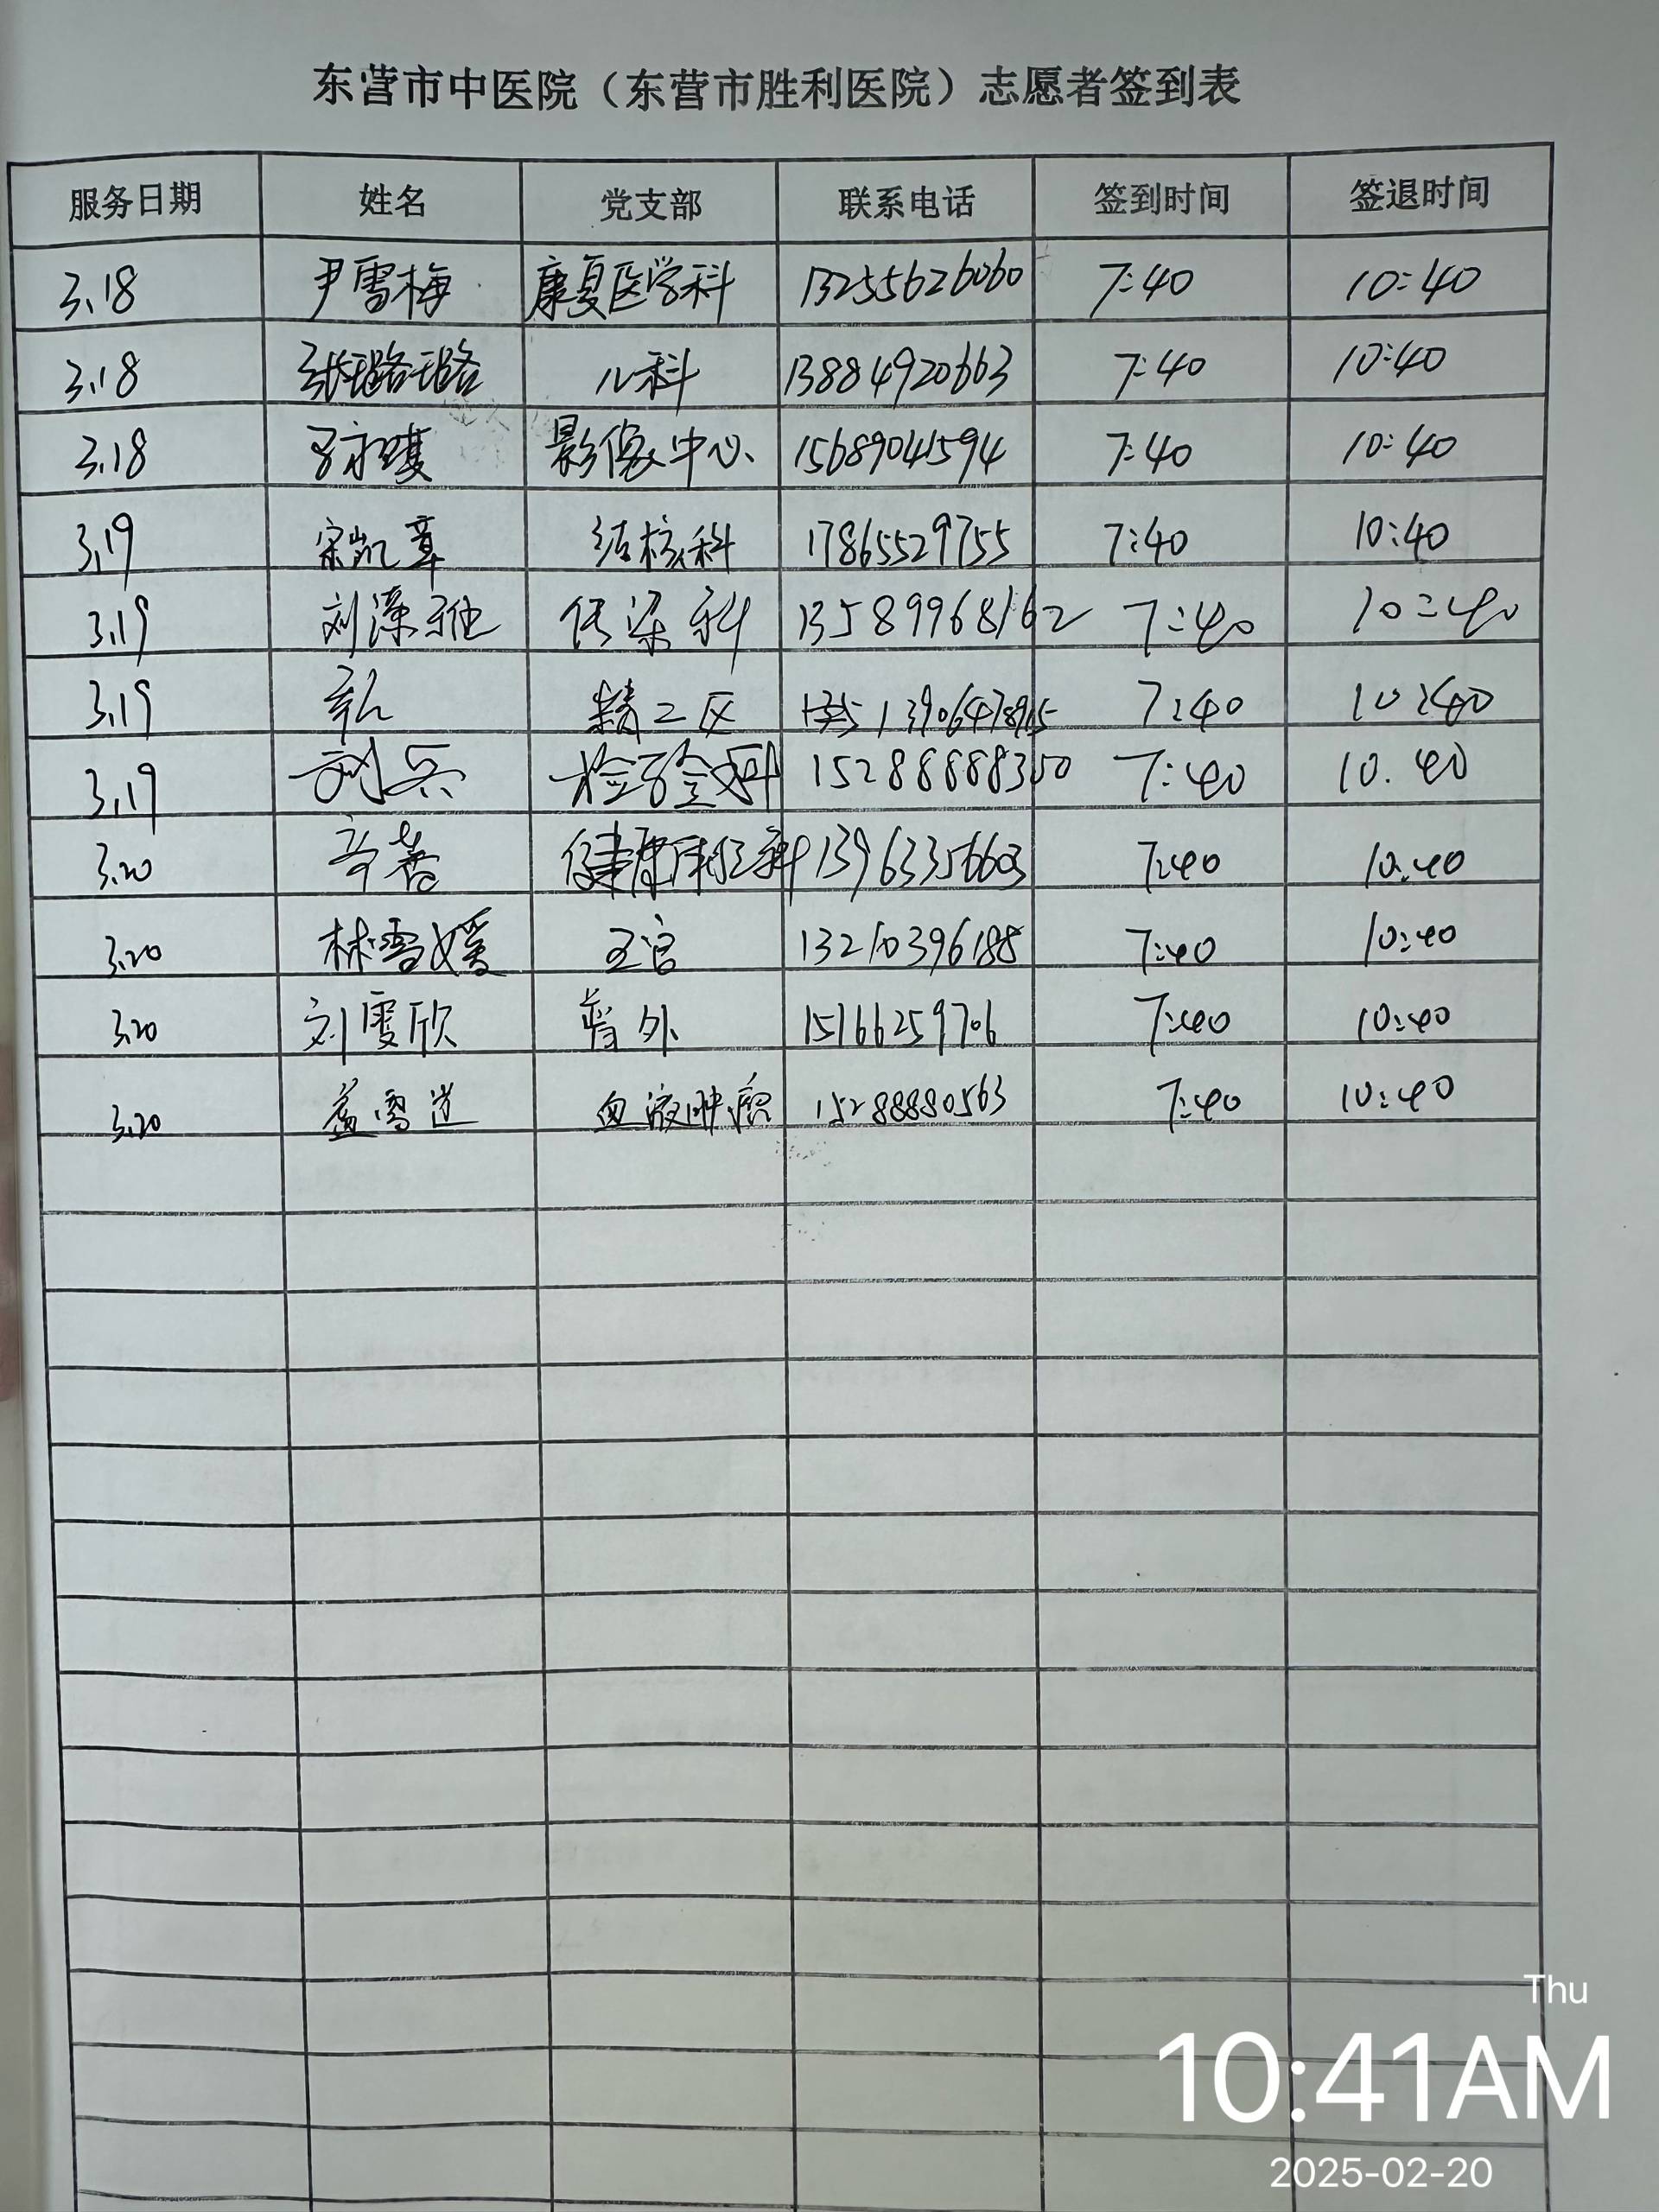 东营市中医院（东营市胜利医院）志愿者签到表
服务日期 姓名 党支部 联系电话 签到时间 签退时间
3.18 尹雪梅 康复医学科 13255626060 7:40 10:40
3.18 张璐璐 儿科 13884920663 7:40 10:40
3.18 影像中心 15689041594 7:40 10:40
3.19 宋凯章 结核科 17865529755 7:40 10:40
3.19 刘藻雅 传染科 13589968162 7:40 10:40
3.19 精二区 7:40 10:40
3.19 刘兵 检验科 15288888350 7:40 10.40
3.20 13963356603 7:40 10.40
3.20 林雪媛 五官 13210396188 7:40 10:40
3.20 刘雯欣 普外 15166259706 7:40 10:40
3.20 盖雪 血液肿瘤 15288880563 7:40 10:40
Thu
10:41AM
2025-02-20